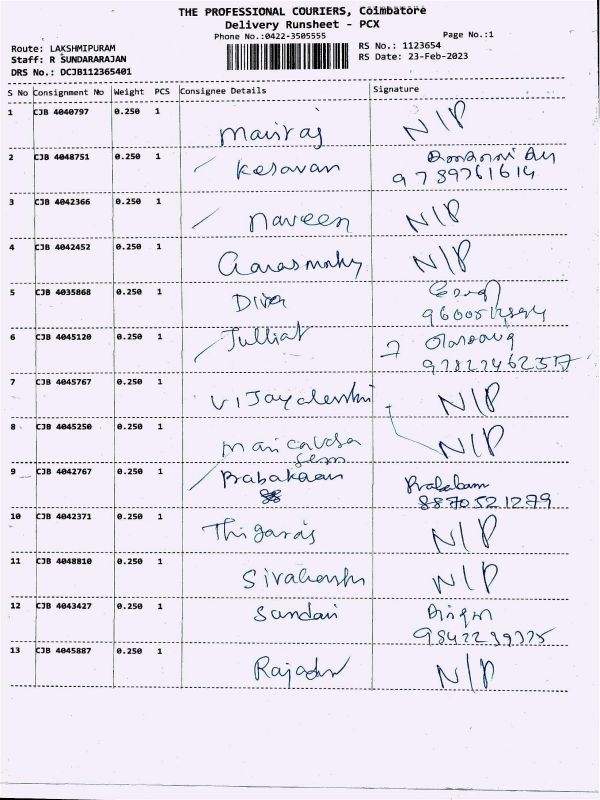 THE PROFESSIONAL COURIERS, Coimbatore
Delivery Runsheet - PCX
Phone No.:0422-3505555
Page No.:1
Route: LAKSHMIPURAM
RS No.: 1123654
Staff: R SUNDARARAJAN
RS Date: 23-Feb-2023
DRS No.: DCJB112365401
S No Consignment No Weight PCS Consignee Details Signature
1 CJB 4040797 0.250 1 N/P
2 CJB 4048751 0.250 1 Kesavan
9789761614
3 CJB 4042366 0.250 1 Naveen N/P
4 CJB 4042452 0.250 1 N/P
5 CJB 4035868 0.250 1
6 CJB 4045120 0.250 1 Julliat
7 CJB 4045767 0.250 1 N/P
8 CJB 4045250 0.250 1 N/P
9 CJB 4042767 0.250 1 Prabakaran
8870521279
10 CJB 4042371 0.250 1 N/P
11 CJB 4048810 0.250 1 N/P
12 CJB 4043427 0.250 1 Sundari
13 CJB 4045887 0.250 1 N/P